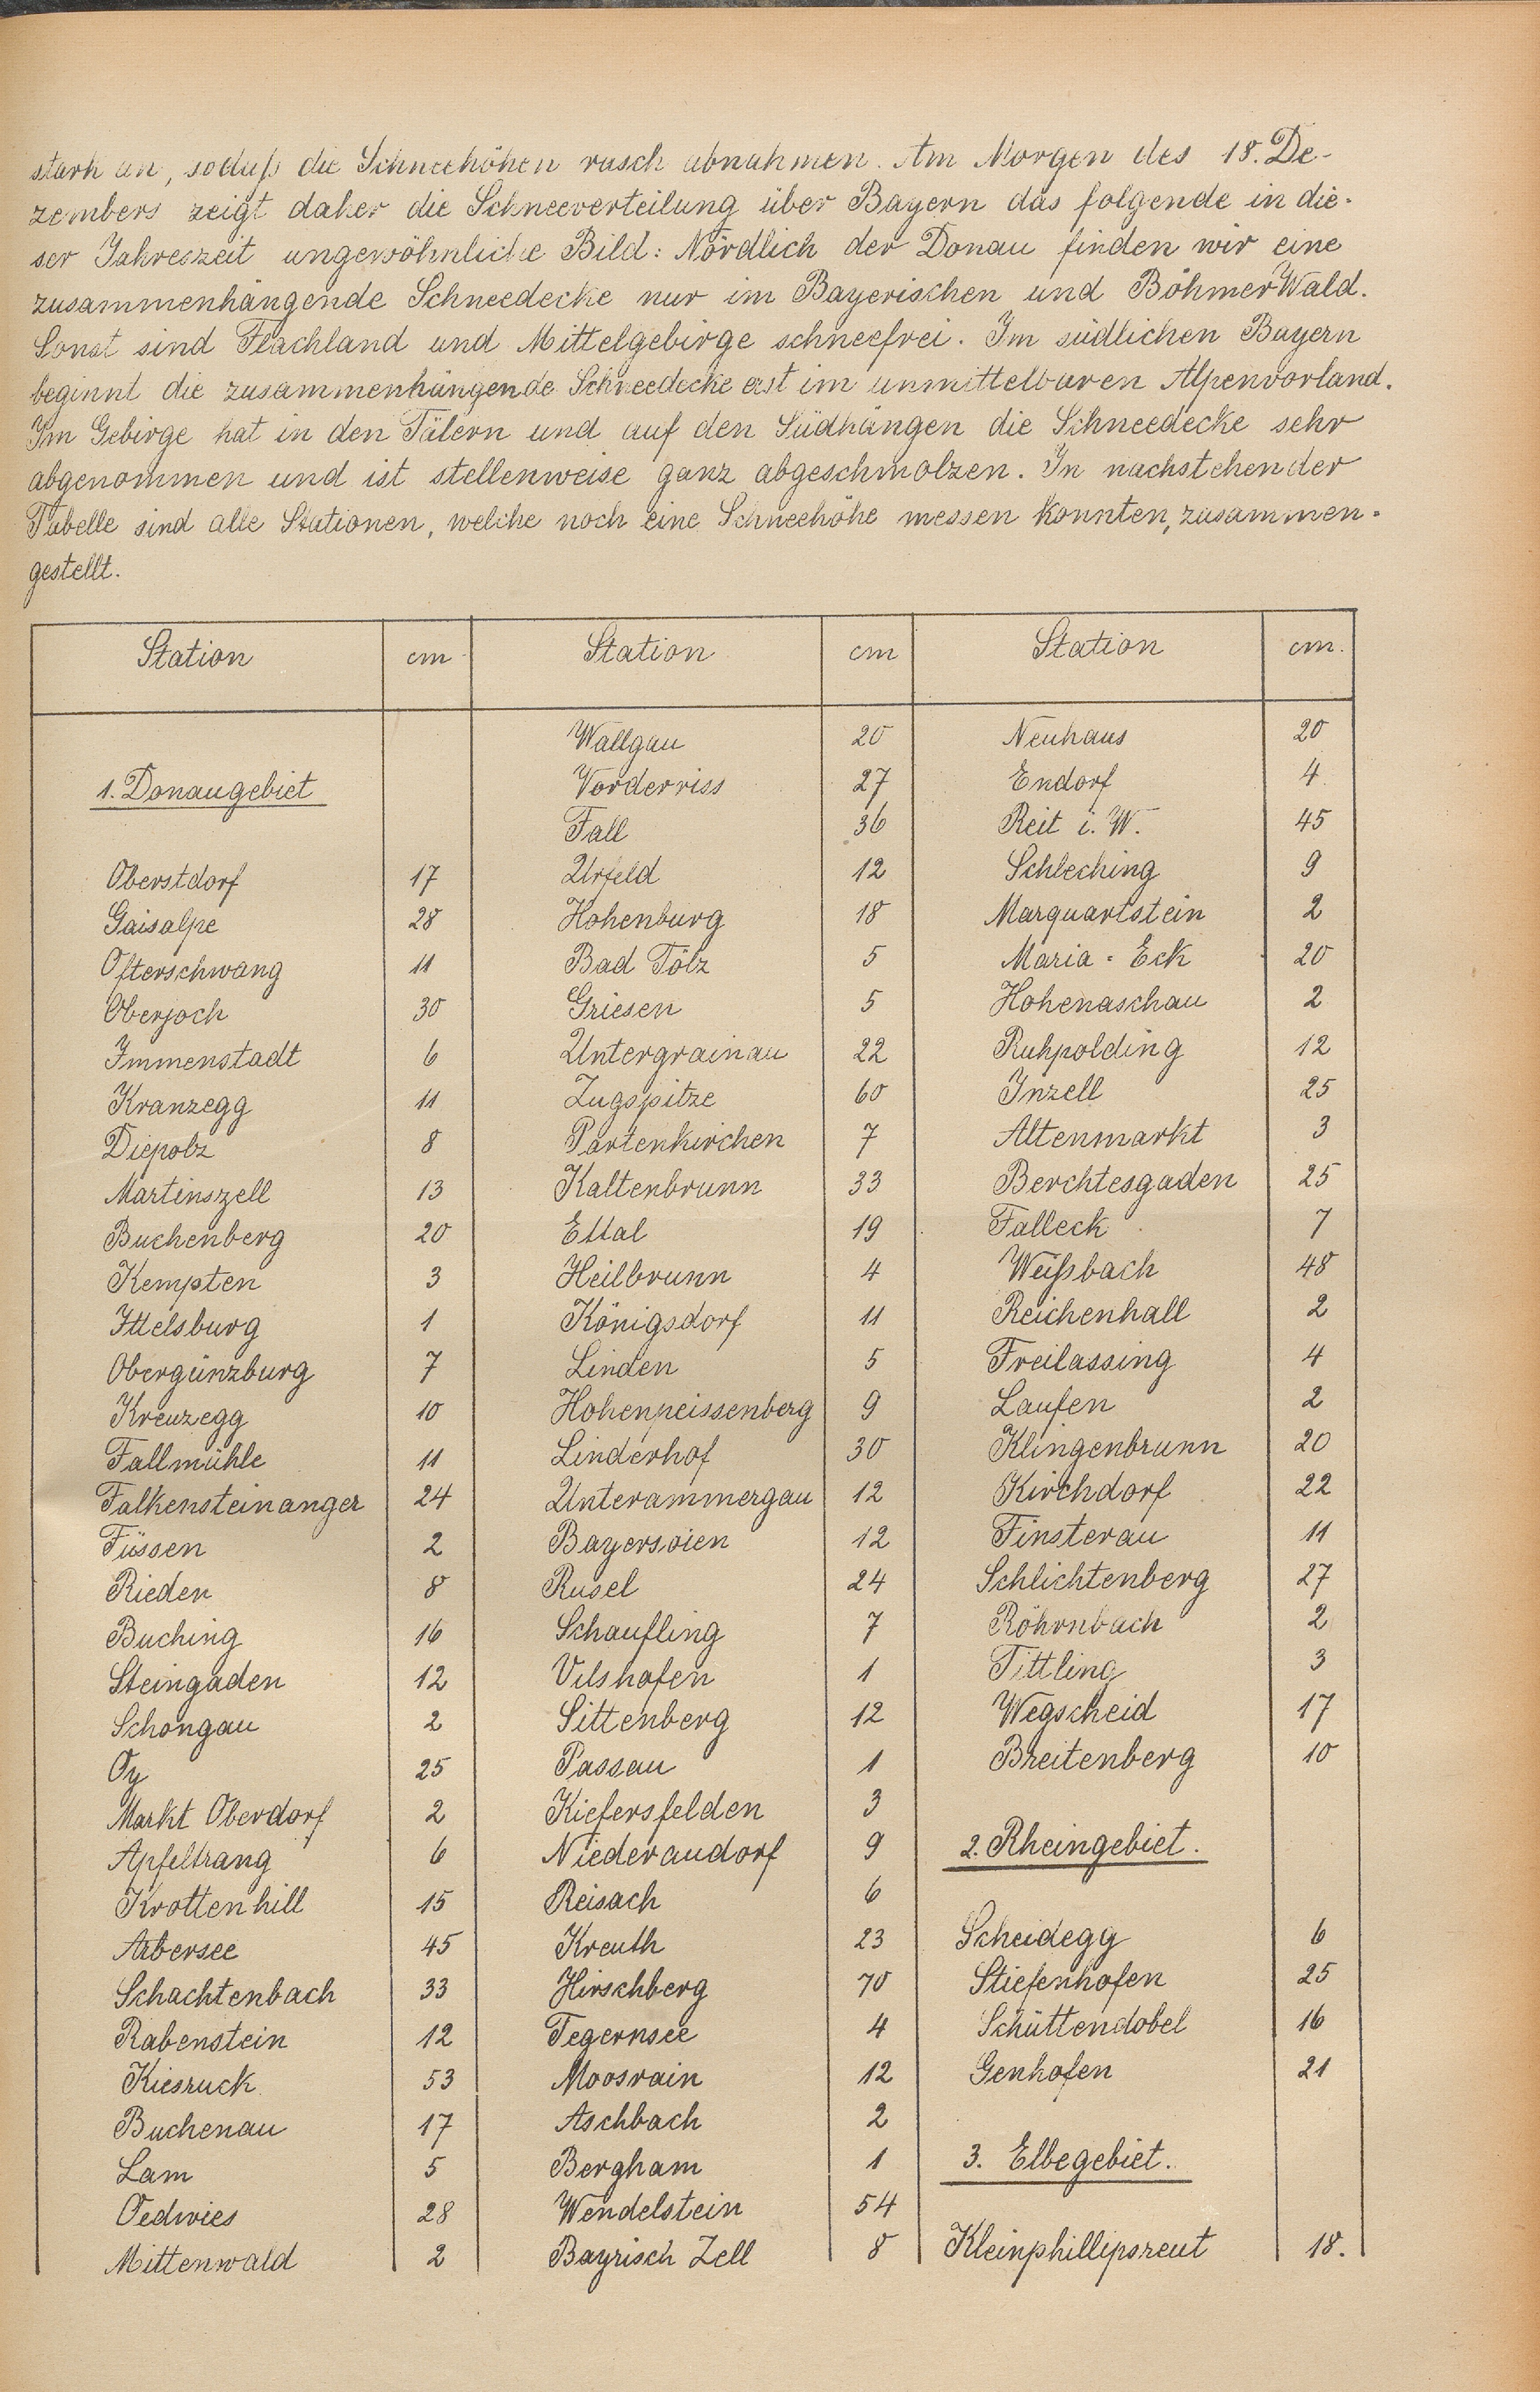 stark an, sodaß die Schneehöhen rasch abnahmen. Am Morgen des 18. De-
zembers zeigt daher die Schneeverteilung über Bayern das folgende in die-
ser Jahreszeit ungewöhnliche Bild: Nördlich der Donau finden wir eine
zusammenhängende Schneedecke nur im Bayerischen und Böhmer Wald.
Sonst sind Flachland und Mittelgebirge schneefrei. Im südlichen Bayern
beginnt die zusammenhängende Schneedecke erst im unmittelbaren Alpenvorland.
Im Gebirge hat in den Tälern und auf den Südhängen die Schneedecke sehr
abgenommen und ist stellenweise ganz abgeschmolzen. In nachstehender
Tabelle sind alle Stationen, welche noch eine Schneehöhe messen konnten, zusammen-
gestellt.
Station cm Station cm Station cm.
Wallgau 20 Neuhaus 20
1. Donaugebiet Vorderriss 27 Endorf 4
Fall 36 Reit i. W. 45
Oberstdorf 17 Urfeld 12 Schleching 9
Gaisalpe 28 Hohenburg 18 Marquartstein 2
Ofterschwang 11 Bad Tölz 5 Maria-Eck 20
Oberjoch 30 Griesen 5 Hohenaschau 2
Immenstadt 6 Untergrainau 22 Ruhpolding 12
Kranzegg 11 Zugspitze 60 Inzell 25
Diepolz 8 Partenkirchen 7 Altenmarkt 3
Martinszell 13 Kaltenbrunn 33 Berchtesgaden 25
Buchenberg 20 Ettal 19 Falleck 7
Kempten 3 Heilbrunn 4 Weißbach 48
Ittelsburg 1 Königsdorf 11 Reichenhall 2
Obergünzburg 7 Linden 5 Freilassing 4
Kreuzegg 10 Hohenpeissenberg 9 Laufen 2
Fallmühle 11 Linderhof 30 Klingenbrunn 20
Falkensteinanger 24 Unterammergau 12 Kirchdorf 22
Füssen 2 Bayersoien 12 Finsterau 11
Rieden 8 Rusel 24 Schlichtenberg 27
Buching 16 Schaufling 7 Röhrnbach 2
Steingaden 12 Vilshofen 1 Tittling 3
Schongau 2 Sittenberg 12 Wegscheid 17
Oy 25 Passau 1 Breitenberg 10
Markt Oberdorf 2 Kiefersfelden 3
Apfeltrang 6 Niederaudorf 9 2. Rheingebiet.
Krottenhill 15 Reisach 6
Arbersee 45 Kreuth 23 Scheidegg 6
Schachtenbach 33 Hirschberg 70 Stiefenhofen 25
Rabenstein 12 Tegernsee 4 Schüttendobel 16
Kiesruck 53 Moosrain 12 Genhofen 21
Buchenau 17 Aschbach 2
Lam 5 Bergham 1 3. Elbegebiet.
Oedwies 28 Wendelstein 54
Mittenwald 2 Bayrisch Zell 8 Kleinphillipsreut 18.